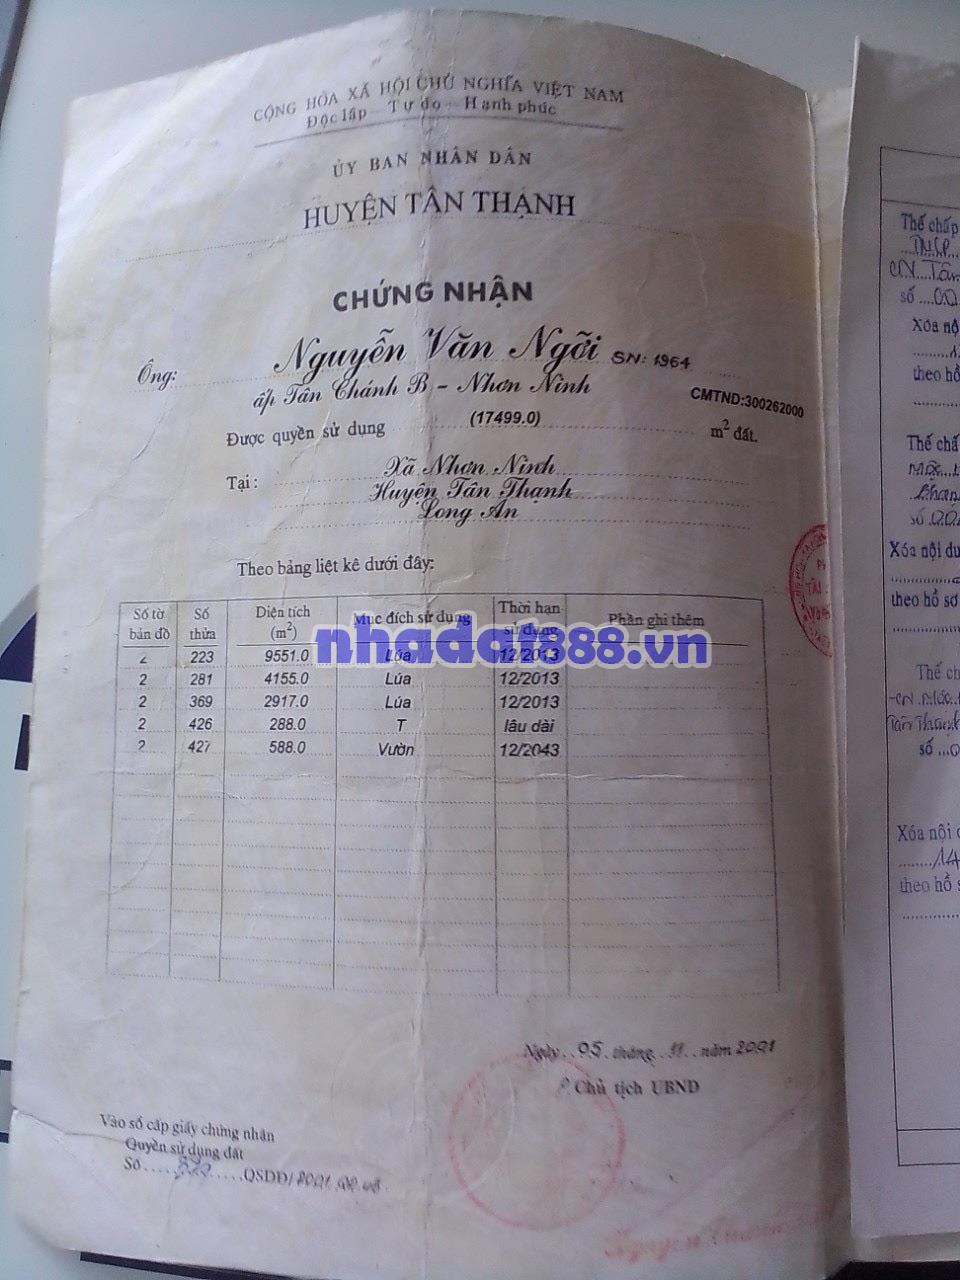 CỘNG HÒA XÃ HỘI CHỦ NGHĨA VIỆT NAM
Độc lập - Tự do - Hạnh phúc
ỦY BAN NHÂN DÂN
HUYỆN TÂN THẠNH
CHỨNG NHẬN
Ông: Nguyễn Văn Ngỡi SN: 1964
ấp Tân Chánh B - Nhơn Ninh CMTND:300262000
Được quyền sử dụng (17499.0) m² đất.
Tại: Xã Nhơn Ninh
Huyện Tân Thạnh
Long An
Theo bảng liệt kê dưới đây:
Số tờ bản đồ Số thửa Diện tích (m²) Mục đích sử dụng Thời hạn sử dụng Phần ghi thêm
nhadat888.vn
2 223 9551.0 Lúa 12/2013
2 281 4155.0 Lúa 12/2013
2 369 2917.0 Lúa 12/2013
2 426 288.0 T lâu dài
2 427 588.0 Vườn 12/2043
Ngày 05 tháng 11 năm 2001
P. Chủ tịch UBND
Vào sổ cấp giấy chứng nhận
Quyền sử dụng đất
Số QSDĐ/2001
Nguyễn Thanh
Thế chấp
CN Tân
số
Xóa nộ
theo hồ
Thế chấ
số
Xóa nội du
theo hồ sơ
Thế ch
Tân Thạnh
số
Xóa nội c
14
theo hồ s